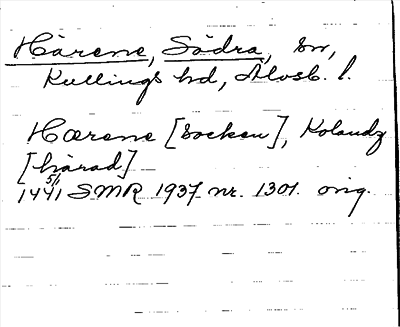 Härene, Södra, sn,
Kullings hd, Älvsb. l.
Hærene [socken], Kolandz
[härad]
1441 5/1 SMR 1937 nr. 1301. orig.